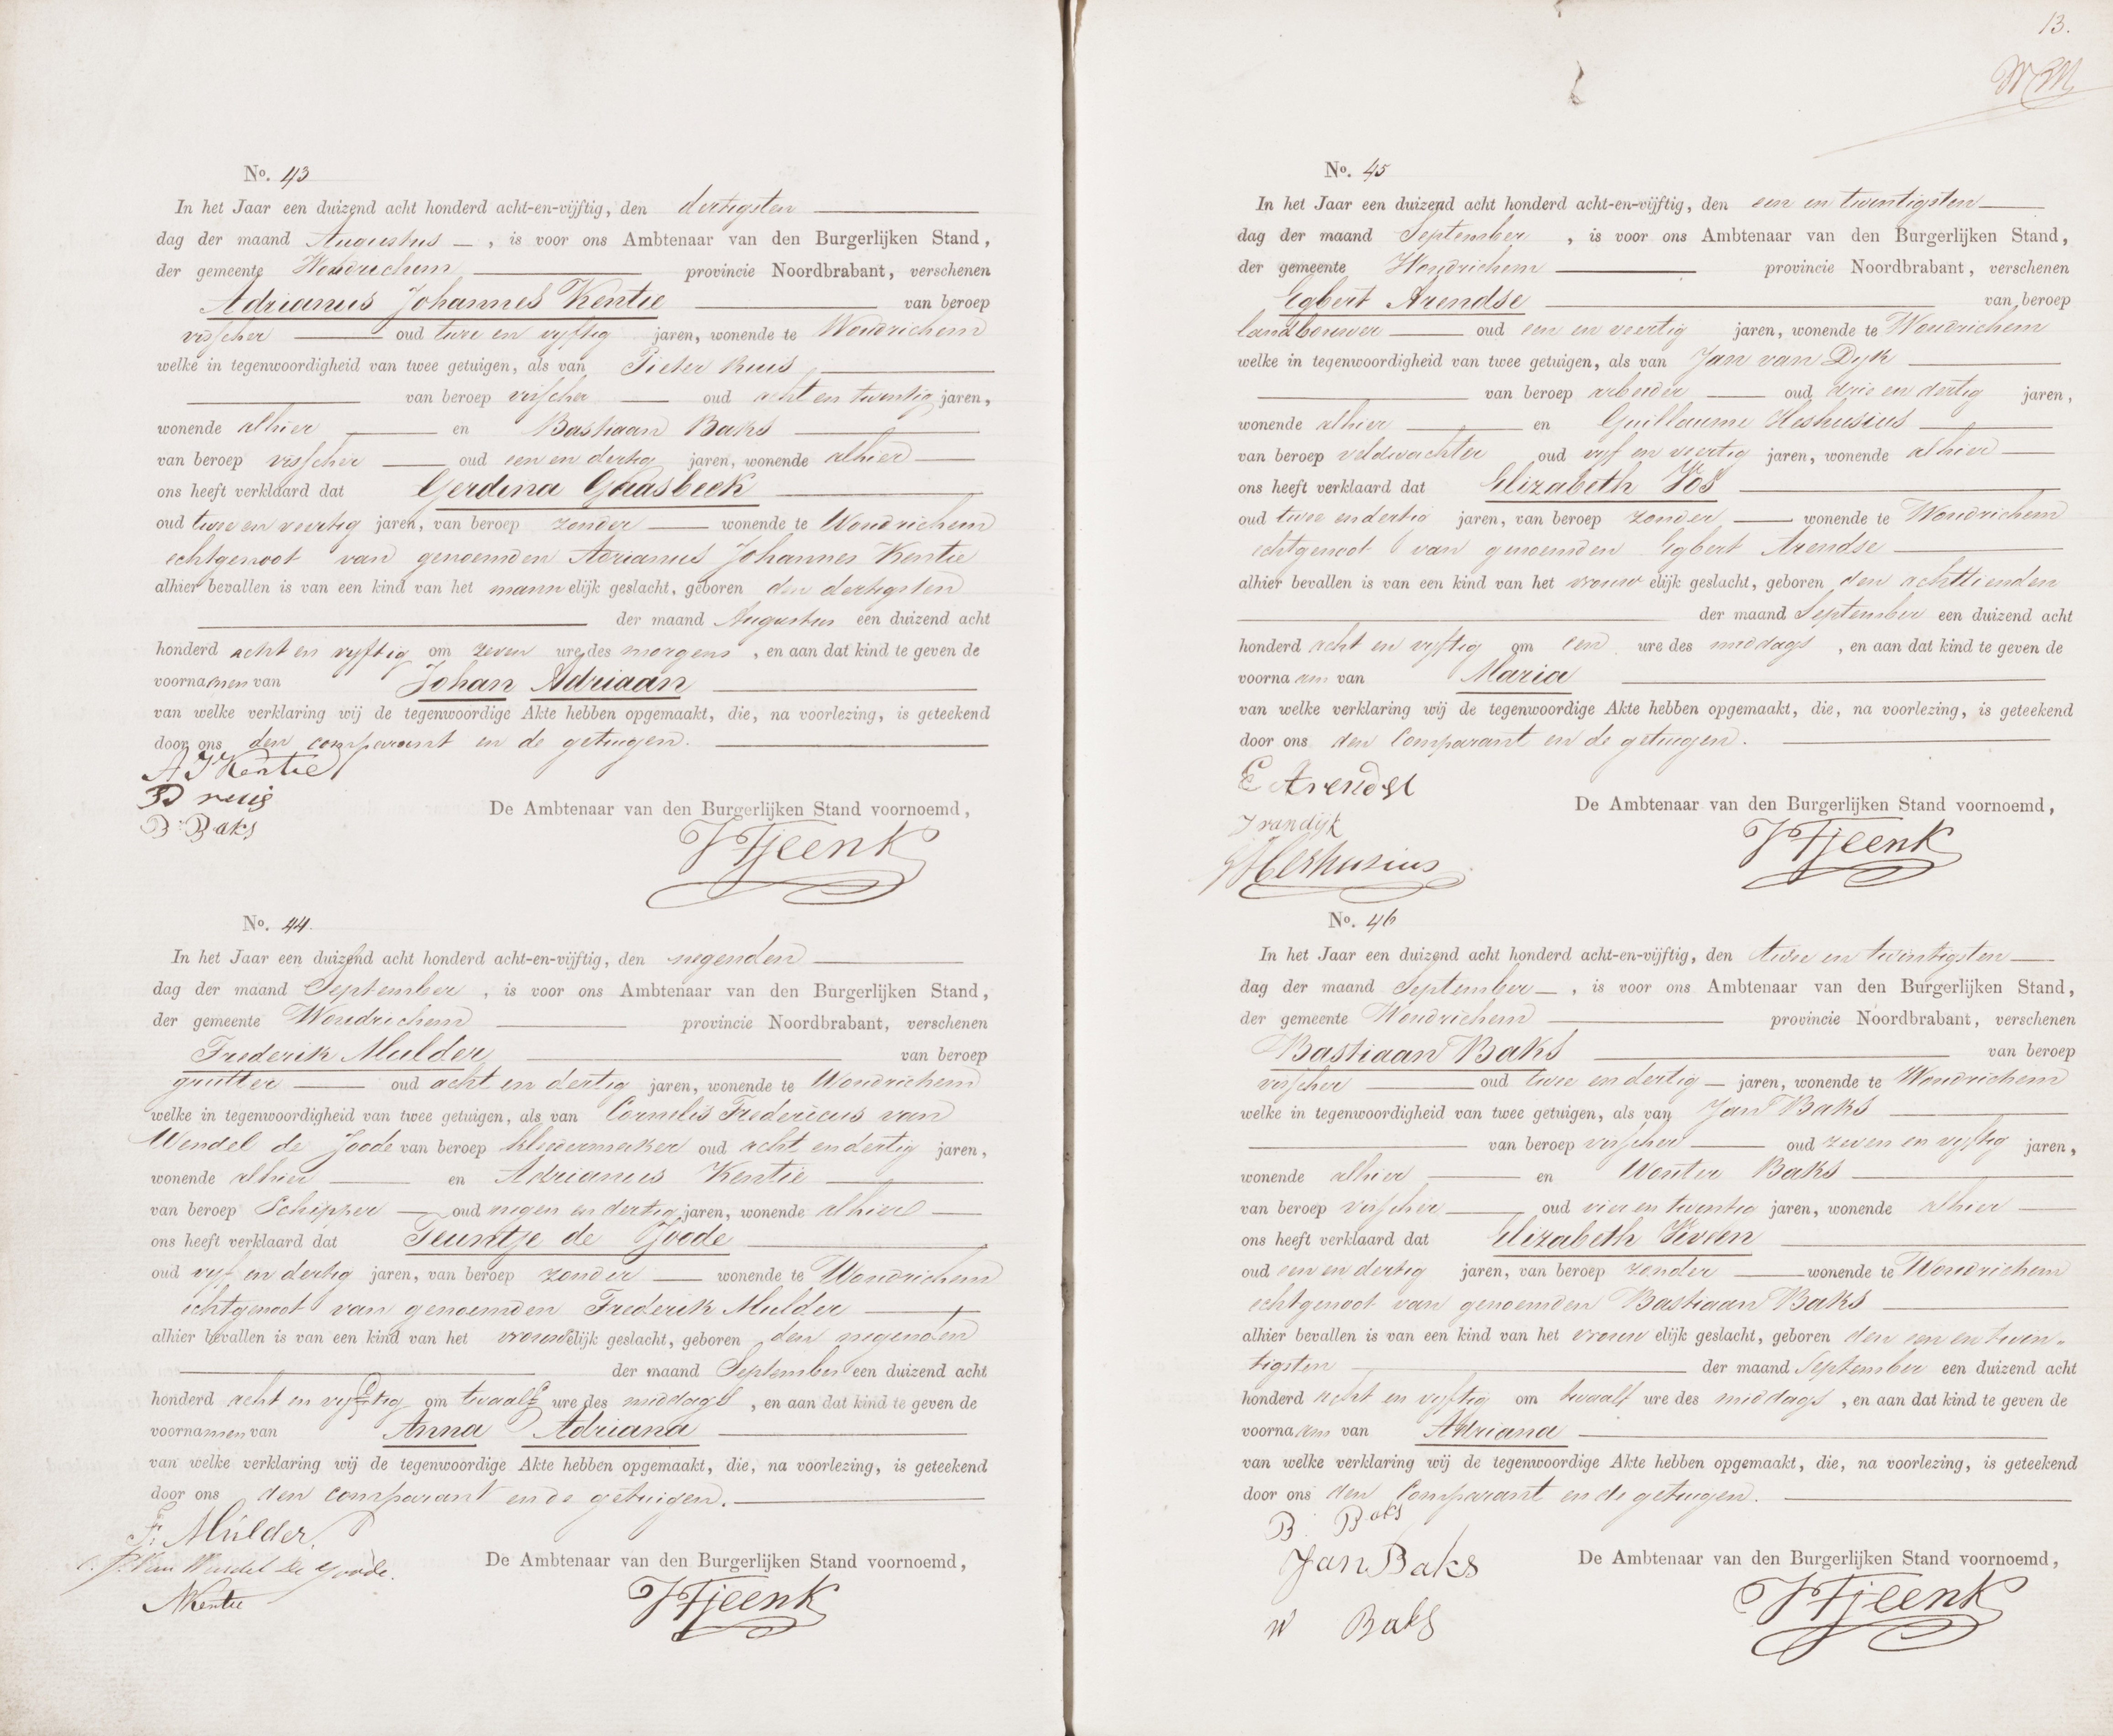 No. 43
In het Jaar een duizend acht honderd acht-en-vijftig, den dertigsten
dag der maand Augustus, is voor ons Ambtenaar van den Burgerlijken Stand,
der gemeente Woudrichem provincie Noordbrabant, verschenen
Adrianus Johannes Kentie van beroep
visscher oud twee en vyftig jaren, wonende te Woudrichem
welke in tegenwoordigheid van twee getuigen, als van Pieter
van beroep visscher oud acht en twintig jaren,
wonende alhier en Bastiaan Baks
van beroep visscher oud een en dertig jaren, wonende alhier
ons heeft verklaard dat Gerdina Gaasbeek
oud twee en veertig jaren, van beroep zonder wonende te Woudrichem
echtgenoot van genoemden Adrianus Johannes Kentie
alhier bevallen is van een kind van het mannelijk geslacht, geboren den dertigsten
der maand Augustus een duizend acht
honderd acht en vyftig om zeven ure des morgens, en aan dat kind te geven de
voornamen van Johan Adriaan
van welke verklaring wij de tegenwoordige Akte hebben opgemaakt, die, na voorlezing, is geteekend
door ons den comparant en de getuigen.
A J Kentie
B Baks
De Ambtenaar van den Burgerlijken Stand voornoemd,
Tjeenk
No. 44.
In het Jaar een duizend acht honderd acht-en-vijftig, den negenden
dag der maand September, is voor ons Ambtenaar van den Burgerlijken Stand,
der gemeente Woudrichem provincie Noordbrabant, verschenen
Frederik Mulder van beroep
grutter oud acht en dertig jaren, wonende te Woudrichem
welke in tegenwoordigheid van twee getuigen, als van Cornelis Fredericus van
Wendel de Joode van beroep kleedermaker oud acht en dertig jaren,
wonende alhier en Adrianus Kentie
van beroep Schipper oud negen en dertig jaren, wonende alhier
ons heeft verklaard dat Teuntje de Joode
oud vyf en dertig jaren, van beroep zonder wonende te Woudrichem
echtgenoot van genoemden Frederik Mulder
alhier bevallen is van een kind van het vrouwelijk geslacht, geboren den negenden
der maand September een duizend acht
honderd acht en vyftig om twaalf ure des middags, en aan dat kind te geven de
voornamen van Anna Adriana
van welke verklaring wij de tegenwoordige Akte hebben opgemaakt, die, na voorlezing, is geteekend
door ons den comparant en de getuigen.
F. Mulder.
van Wendel de Joode.
AKentie
De Ambtenaar van den Burgerlijken Stand voornoemd,
Tjeenk
13.
No. 45
In het Jaar een duizend acht honderd acht-en-vijftig, den een en twintigsten
dag der maand September, is voor ons Ambtenaar van den Burgerlijken Stand,
der gemeente Woudrichem provincie Noordbrabant, verschenen
Egbert Arendse van beroep
landbouwer oud een en veertig jaren, wonende te Woudrichem
welke in tegenwoordigheid van twee getuigen, als van Jan van Dyk
van beroep arbeider oud drie en dertig jaren,
wonende alhier en Guillaume Heshusius
van beroep veldwachter oud vyf en veertig jaren, wonende alhier
ons heeft verklaard dat Elizabeth Vos
oud twee en dertig jaren, van beroep zonder wonende te Woudrichem
echtgenoot van genoemden Egbert Arendse
alhier bevallen is van een kind van het vrouwelijk geslacht, geboren den achttienden
der maand September een duizend acht
honderd acht en vyftig om een ure des middags, en aan dat kind te geven de
voornaam van Maria
van welke verklaring wij de tegenwoordige Akte hebben opgemaakt, die, na voorlezing, is geteekend
door ons den Comparant en de getuigen.
E Arendse
J van dijk
Heshusius
De Ambtenaar van den Burgerlijken Stand voornoemd,
Tjeenk
No. 46
In het Jaar een duizend acht honderd acht-en-vijftig, den twee en twintigsten
dag der maand September, is voor ons Ambtenaar van den Burgerlijken Stand,
der gemeente Woudrichem provincie Noordbrabant, verschenen
Bastiaan Baks van beroep
visscher oud twee en dertig jaren, wonende te Woudrichem
welke in tegenwoordigheid van twee getuigen, als van Jan Baks
van beroep visscher oud zeven en vyftig jaren,
wonende alhier en Wouter Baks
van beroep visscher oud vier en twintig jaren, wonende alhier
ons heeft verklaard dat Elizabeth
oud een en dertig jaren, van beroep zonder wonende te Woudrichem
echtgenoot van genoemden Bastiaan Baks
alhier bevallen is van een kind van het vrouwelijk geslacht, geboren den een en twin-
tigsten der maand September een duizend acht
honderd acht en vyftig om twaalf ure des middags, en aan dat kind te geven de
voornaam van Adriana
van welke verklaring wij de tegenwoordige Akte hebben opgemaakt, die, na voorlezing, is geteekend
door ons den Comparant en de getuigen.
B. Baks
Jan Baks
W Baks
De Ambtenaar van den Burgerlijken Stand voornoemd,
Tjeenk